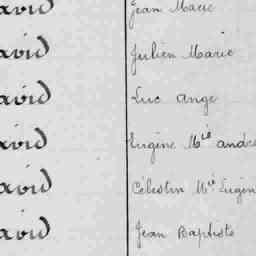 avid Jean Marie
avid Julien Marie
avid Luc Ange
avid Eugène Mie André
avid Célestin Mie Eugèn
avid Jean Baptiste